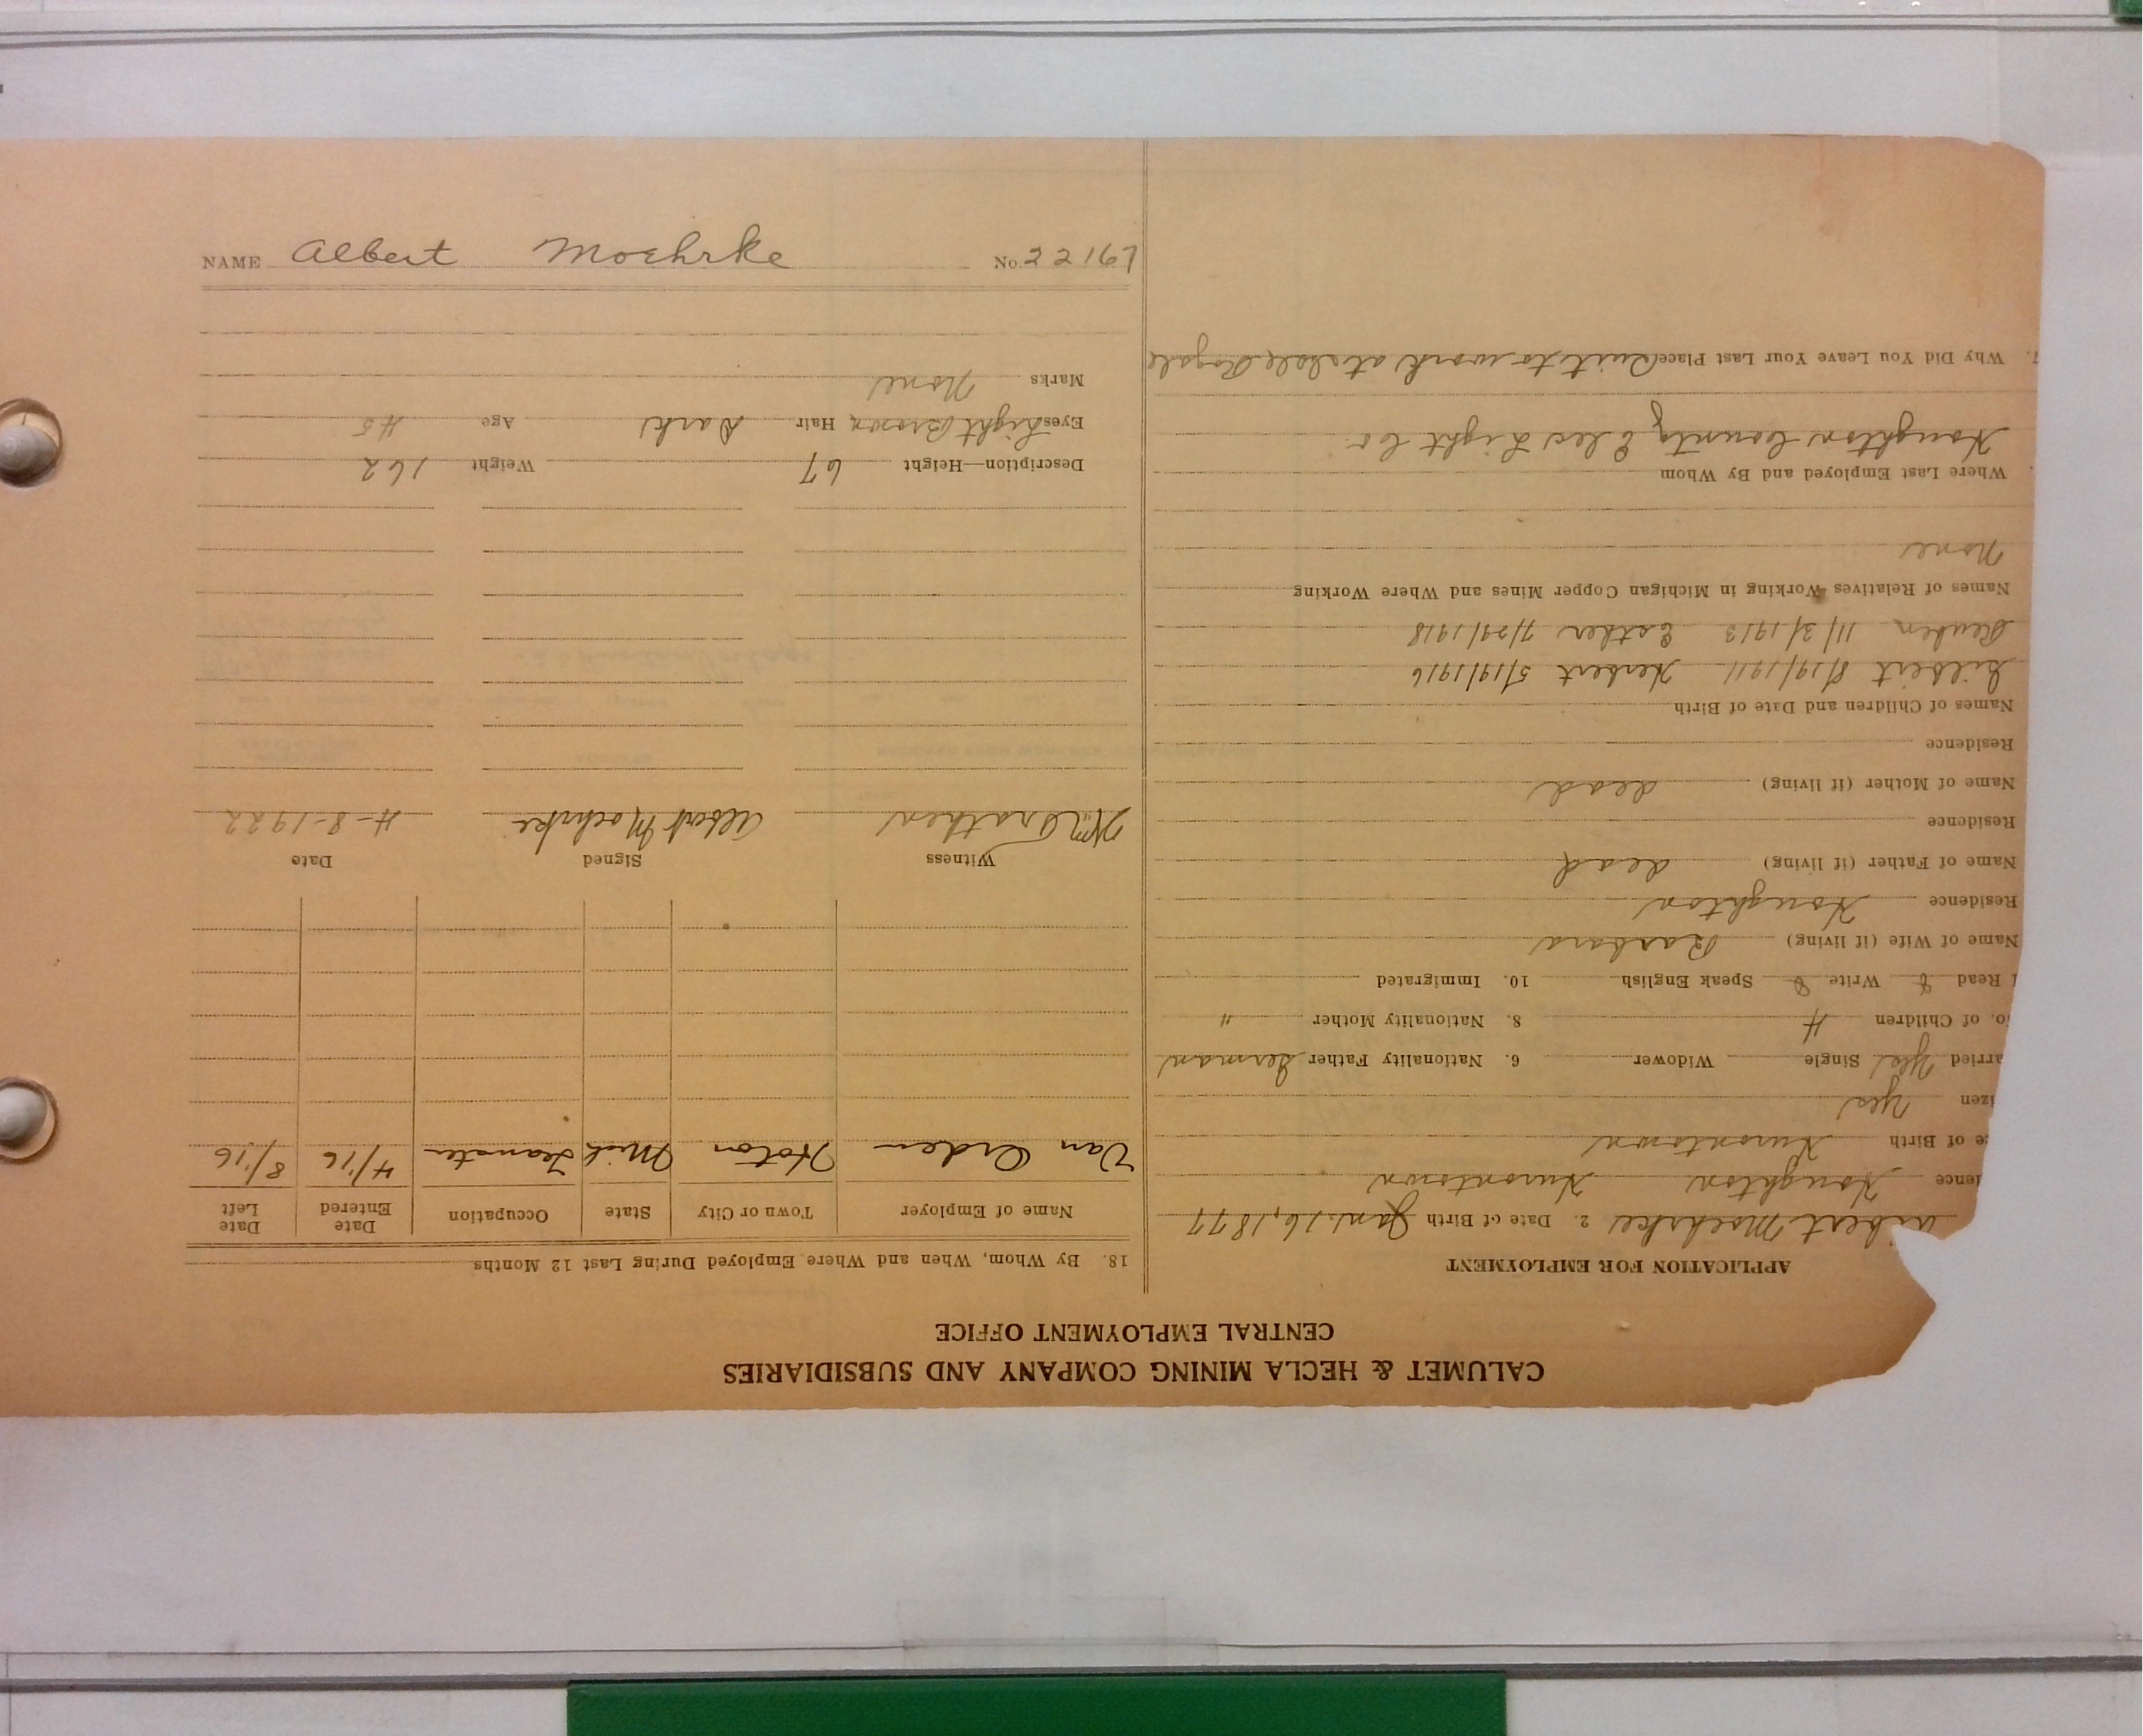 CALUMET & HECLA MINING COMPANY AND SUBSIDIARIES
CENTRAL EMPLOYMENT OFFICE
APPLICATION FOR EMPLOYMENT
Albert Moehrke 2. Date of Birth Jan. 16, 1877
ience Houghton Hurontown
ce of Birth Hurontown
izen Yes
arried Yes Single Widower 6. Nationality Father German
o. of Children 4 8. Nationality Mother "
Read Write Speak English 10. Immigrated
Name of Wife (if living) Barbara
Residence Houghton
Name of Father (if living) dead
Residence
Name of Mother (if living) dead
Residence
Names of Children and Date of Birth
Gilbert 8/19/1911 Herbert 5/19/1916
Reuben 11/3/1913 Esther 7/29/1918
Names of Relatives Working in Michigan Copper Mines and Where Working
None
Where Last Employed and By Whom
Houghton County Elec Light Co
7. Why Did You Leave Your Last Place Quit to work at Isle Royale
18. By Whom, When and Where Employed During Last 12 Months
Name of Employer Town or City State Occupation Date Entered Date Left
Van Orden Hoton Mich Teamster 4/'16 8/'16
Witness Signed Date
Albert Moehrke 4-8-1922
Description—Height 67 Weight 162
Eyes Light Brown Hair Dark Age 45
Marks None
NAME Albert Moehrke No. 22167